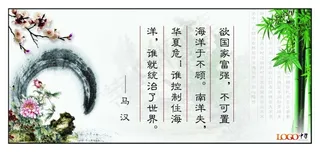 欲国家富强，不可置
海洋于不顾。南洋失，
华夏危！谁控制住海
洋，谁就统治了世界。
——马 汉
LOGO